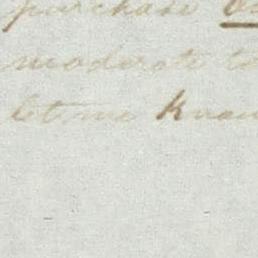 purchase
moderate to
let me know